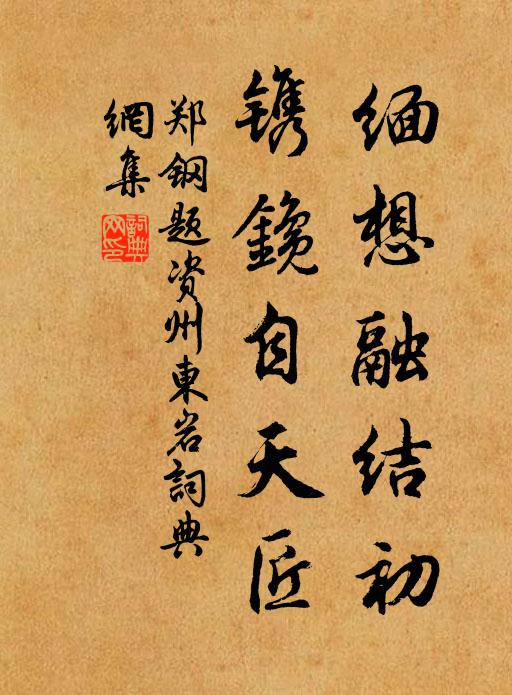 缅想融结初
镌鑱自天匠
郑钢题资州東岩詞典
網集
詞典
网印